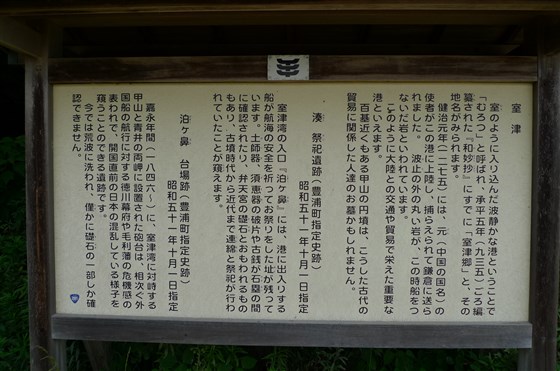 室津
室のように入り込んだ波静かな港ということで
「むろつ」と呼ばれ、承平五年(九三五)ごろ編
纂された『和妙抄』にすでに「室津郷」と、その
地名がみられます。
健治元年(一二七五)には、元(中国の国名)の
使者がこの港に上陸し、捕らえられて鎌倉に送ら
れました。波止の外の丸い岩が、この時船をつ
ないだ岩といわれています。
このように大陸との交通や貿易で栄えた重要な
港といえます。
百基近くもある甲山の円墳は、こうした古代の
貿易に関係した人達のお墓かもしれません。
湊 祭祀遺跡(豊浦町指定史跡)
昭和五十一年十月一日指定
室津湾の入口『泊ヶ鼻』には、港に出入りする
船が航海の安全を祈ってお祭りをした址が残って
います。土師器、須恵器の破片や古銭が石塁の間
に確認されたり、弁天宮の礎石とおもわれるもの
もあり、古墳時代から近代まで連綿と祭祀が行わ
れていたことが窺えます。
泊ヶ鼻 台場跡(豊浦町指定史跡)
昭和五十一年十月一日指定
嘉永年間(一八四六~)に、室津湾に対峙する
甲山と青井の両岬に設置された砲台は、相次ぐ外
国船の航行に対する徳川幕府や毛利藩の危機感の
表われで、開国直前の日本の混乱している様子を
窺うことのできる遺跡です。
今では荒波に洗われ、僅かに礎石の一部しか確
認できません。